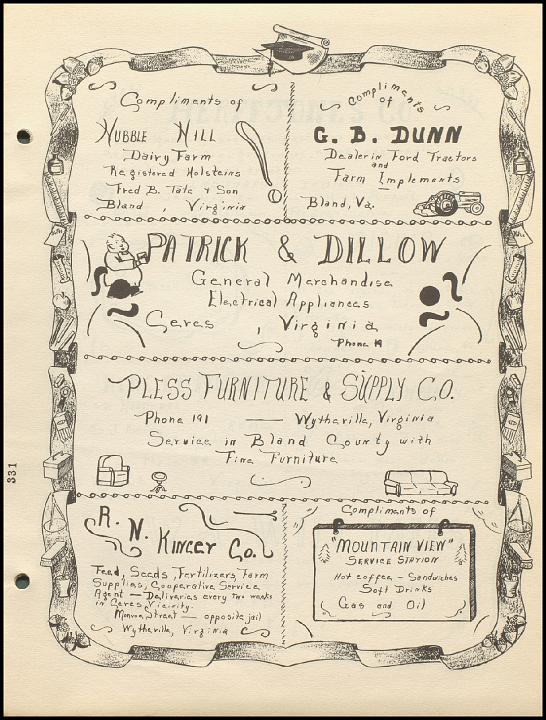 Compliments of
HUBBLE HILL
Dairy Farm
Registered Holsteins
Fred B. Tate & Son
Bland, Virginia
Compliments
of
G. B. DUNN
Dealer in Ford Tractors
and
Farm Implements
Bland, Va.
PATRICK & DILLOW
General Merchandise
Electrical Appliances
Ceres, Virginia
Phone 19
PLESS FURNITURE & SUPPLY CO.
Phone 191 — Wytheville, Virginia
Service in Bland County with
Fine Furniture
R. N. Kincer Co.
Feed, Seeds, Fertilizers, Farm
Supplies, Cooperative Service
Agent — Deliveries every two weeks
in Ceres Vicinity.
Monroe Street — opposite jail
Wytheville, Virginia
Compliments of
"MOUNTAIN VIEW"
SERVICE STATION
Hot coffee — Sandwiches
Soft Drinks
Gas and Oil
331